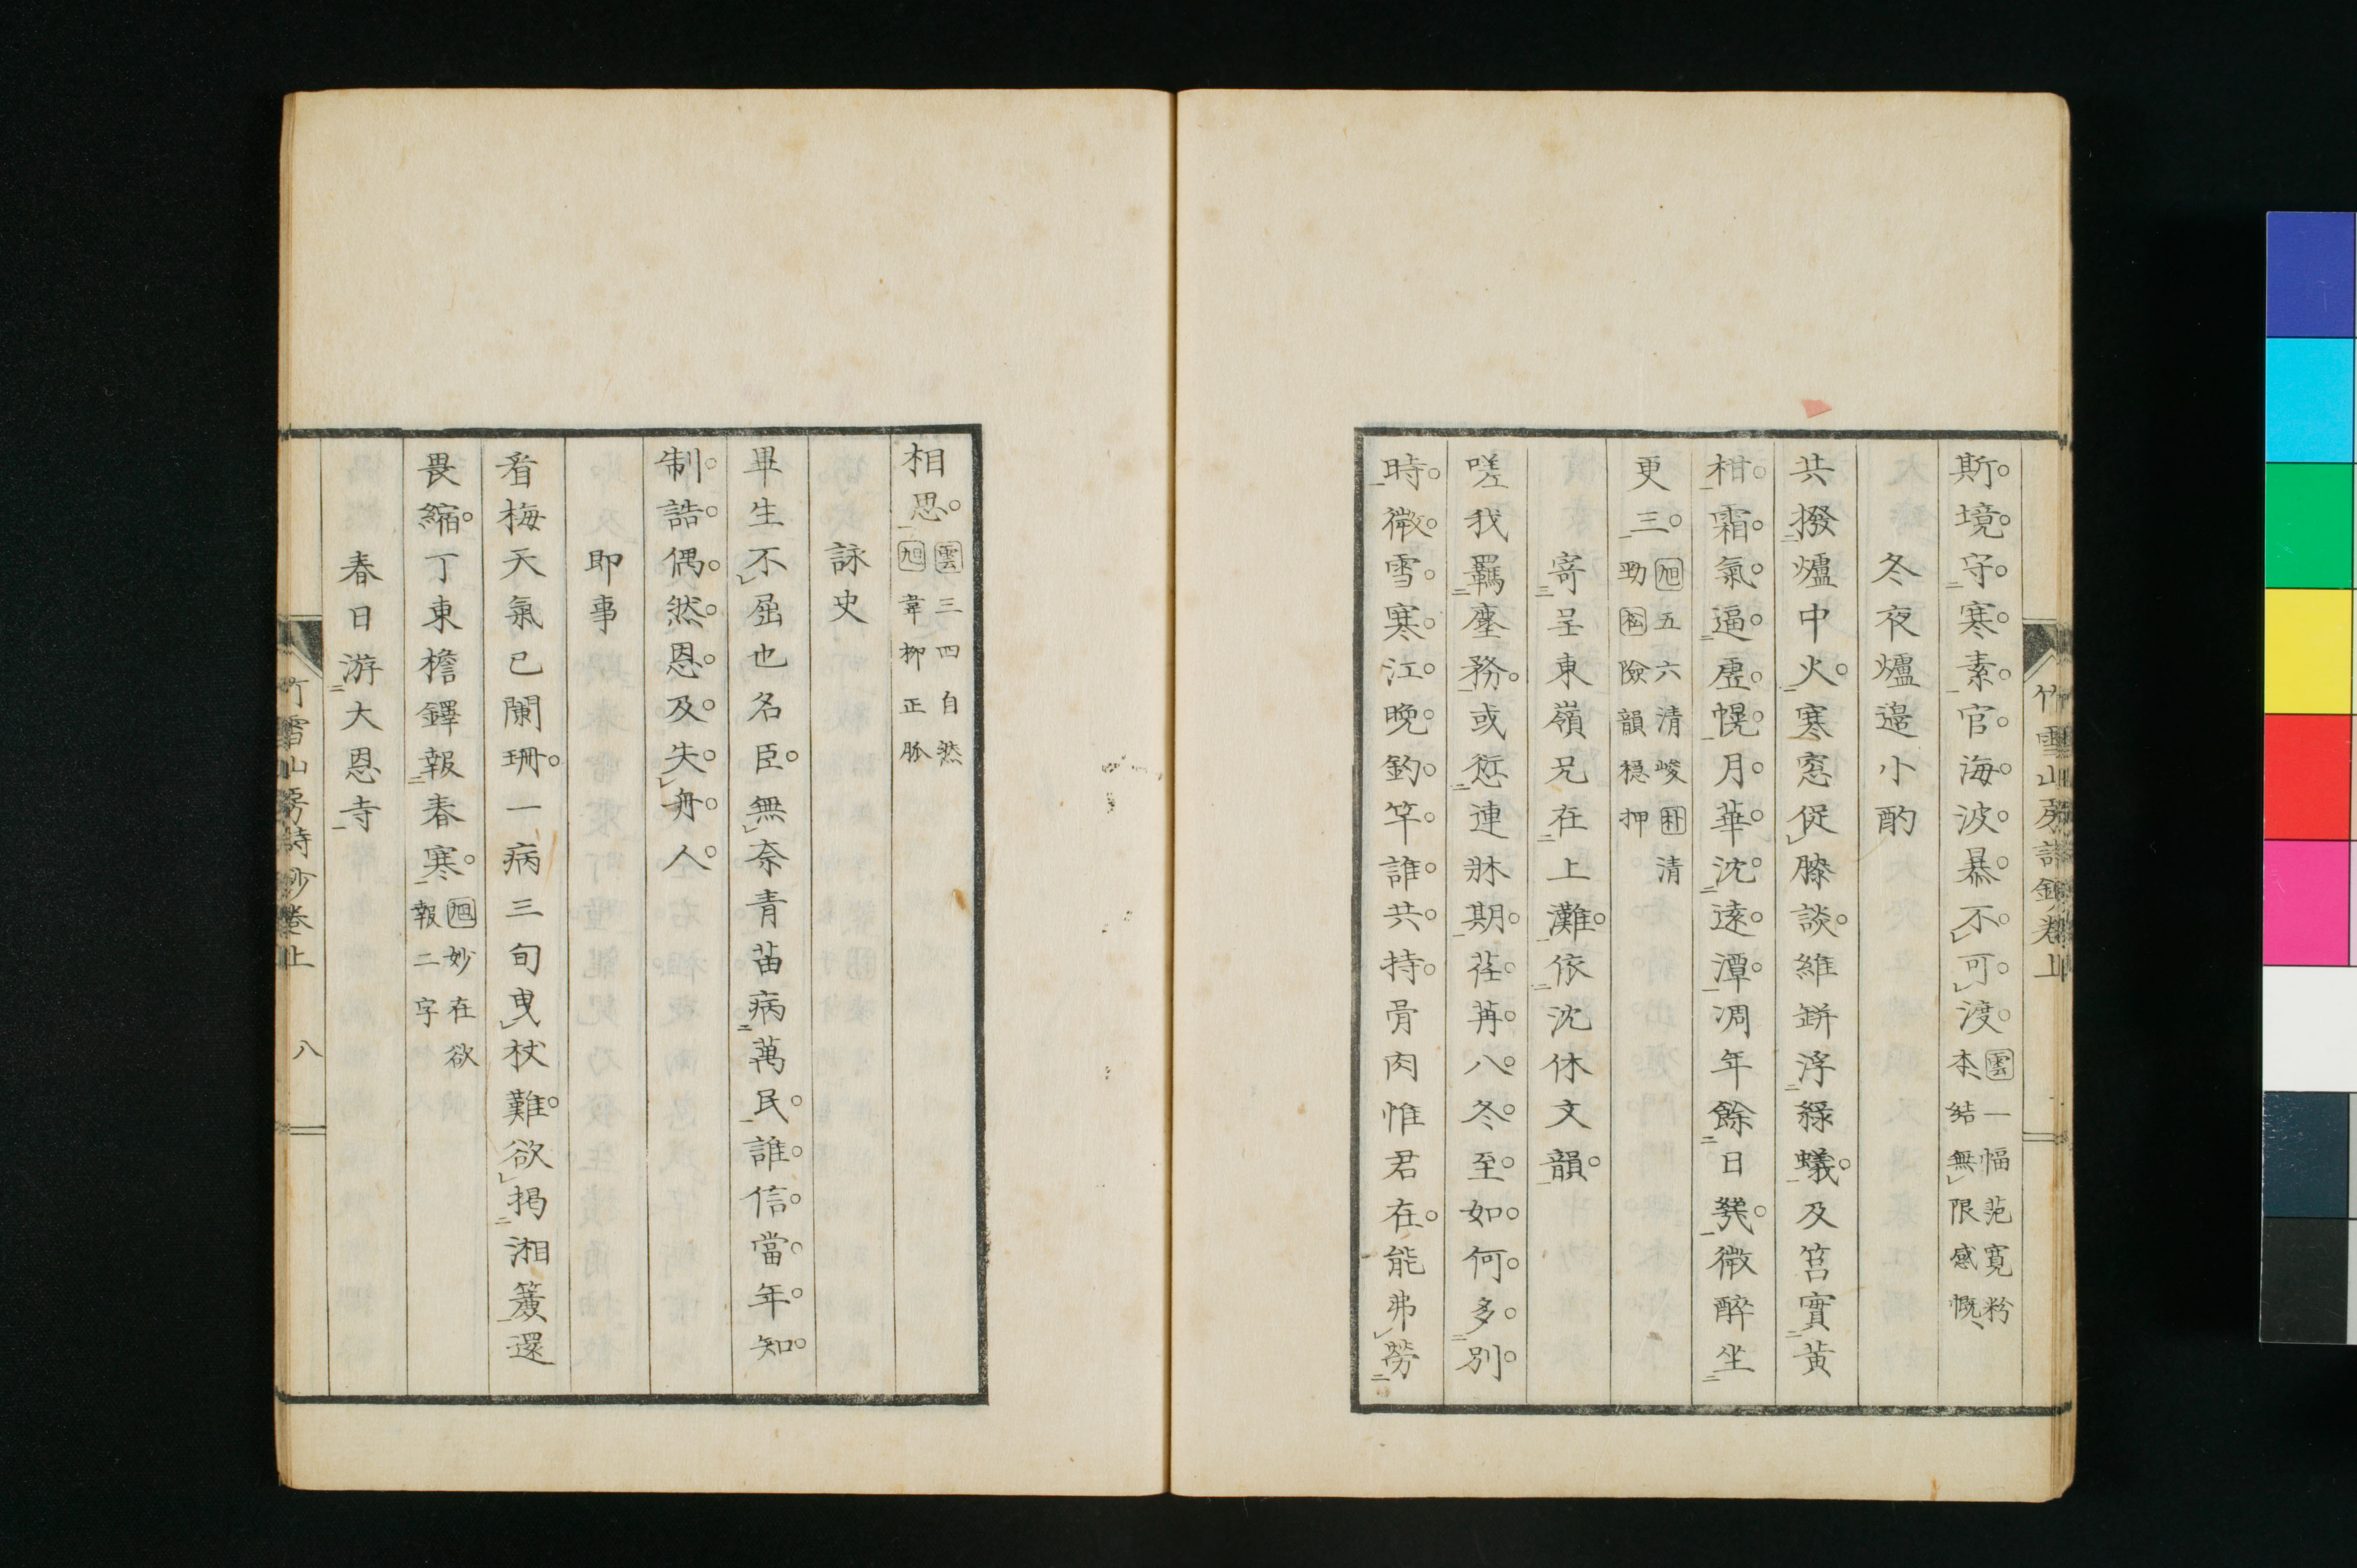 斯境守寒素官海波暴不可渡 雲 一幅范寬粉
本結無限感慨
冬夜爐邊小酌
共撥爐中火寒窓促膝談維缾浮綠蟻及筥實黃
柑霜氣逼虛幌月華沈遠潭凋年餘日幾微醉坐
更三 旭 五六清峻 朴 清
勁 松 險韻穩押
寄呈東嶺兄在上灘依沈休文韻
嗟我羈塵務或愆連牀期荏苒八冬至如何多別
時微雪寒江晚釣竿誰共持骨肉惟君在能弗勞
竹雪山房詩鈔卷上
相思 雲 三四自然
旭 韋柳正脈
詠史
畢生不屈也名臣無奈青苗病萬民誰信當年知
制誥偶然恩及失舟人
即事
看梅天氣已闌珊一病三旬曳杖難欲揭湘簾還
畏縮丁東檐鐸報春寒 旭 妙在欲
報二字
春日游大恩寺
竹雪山房詩鈔卷上 八